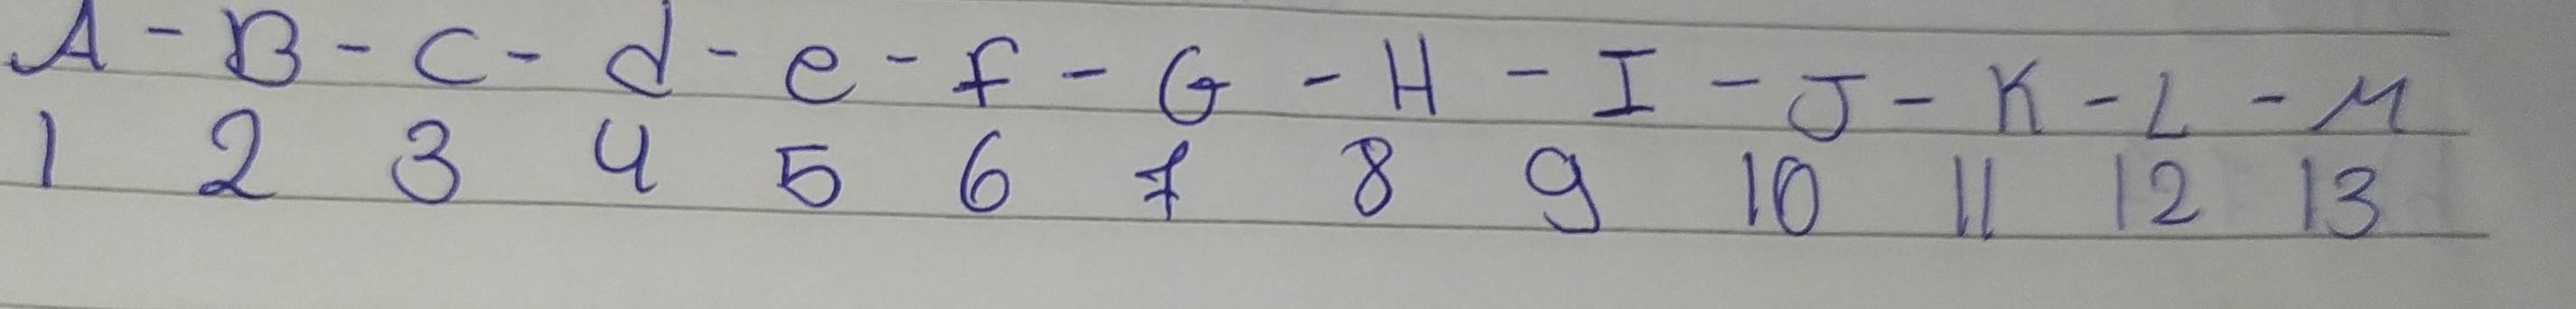 A - B - C - d - e - f - G - H - I - J - K - L - M
1 2 3 4 5 6 7 8 9 10 11 12 13